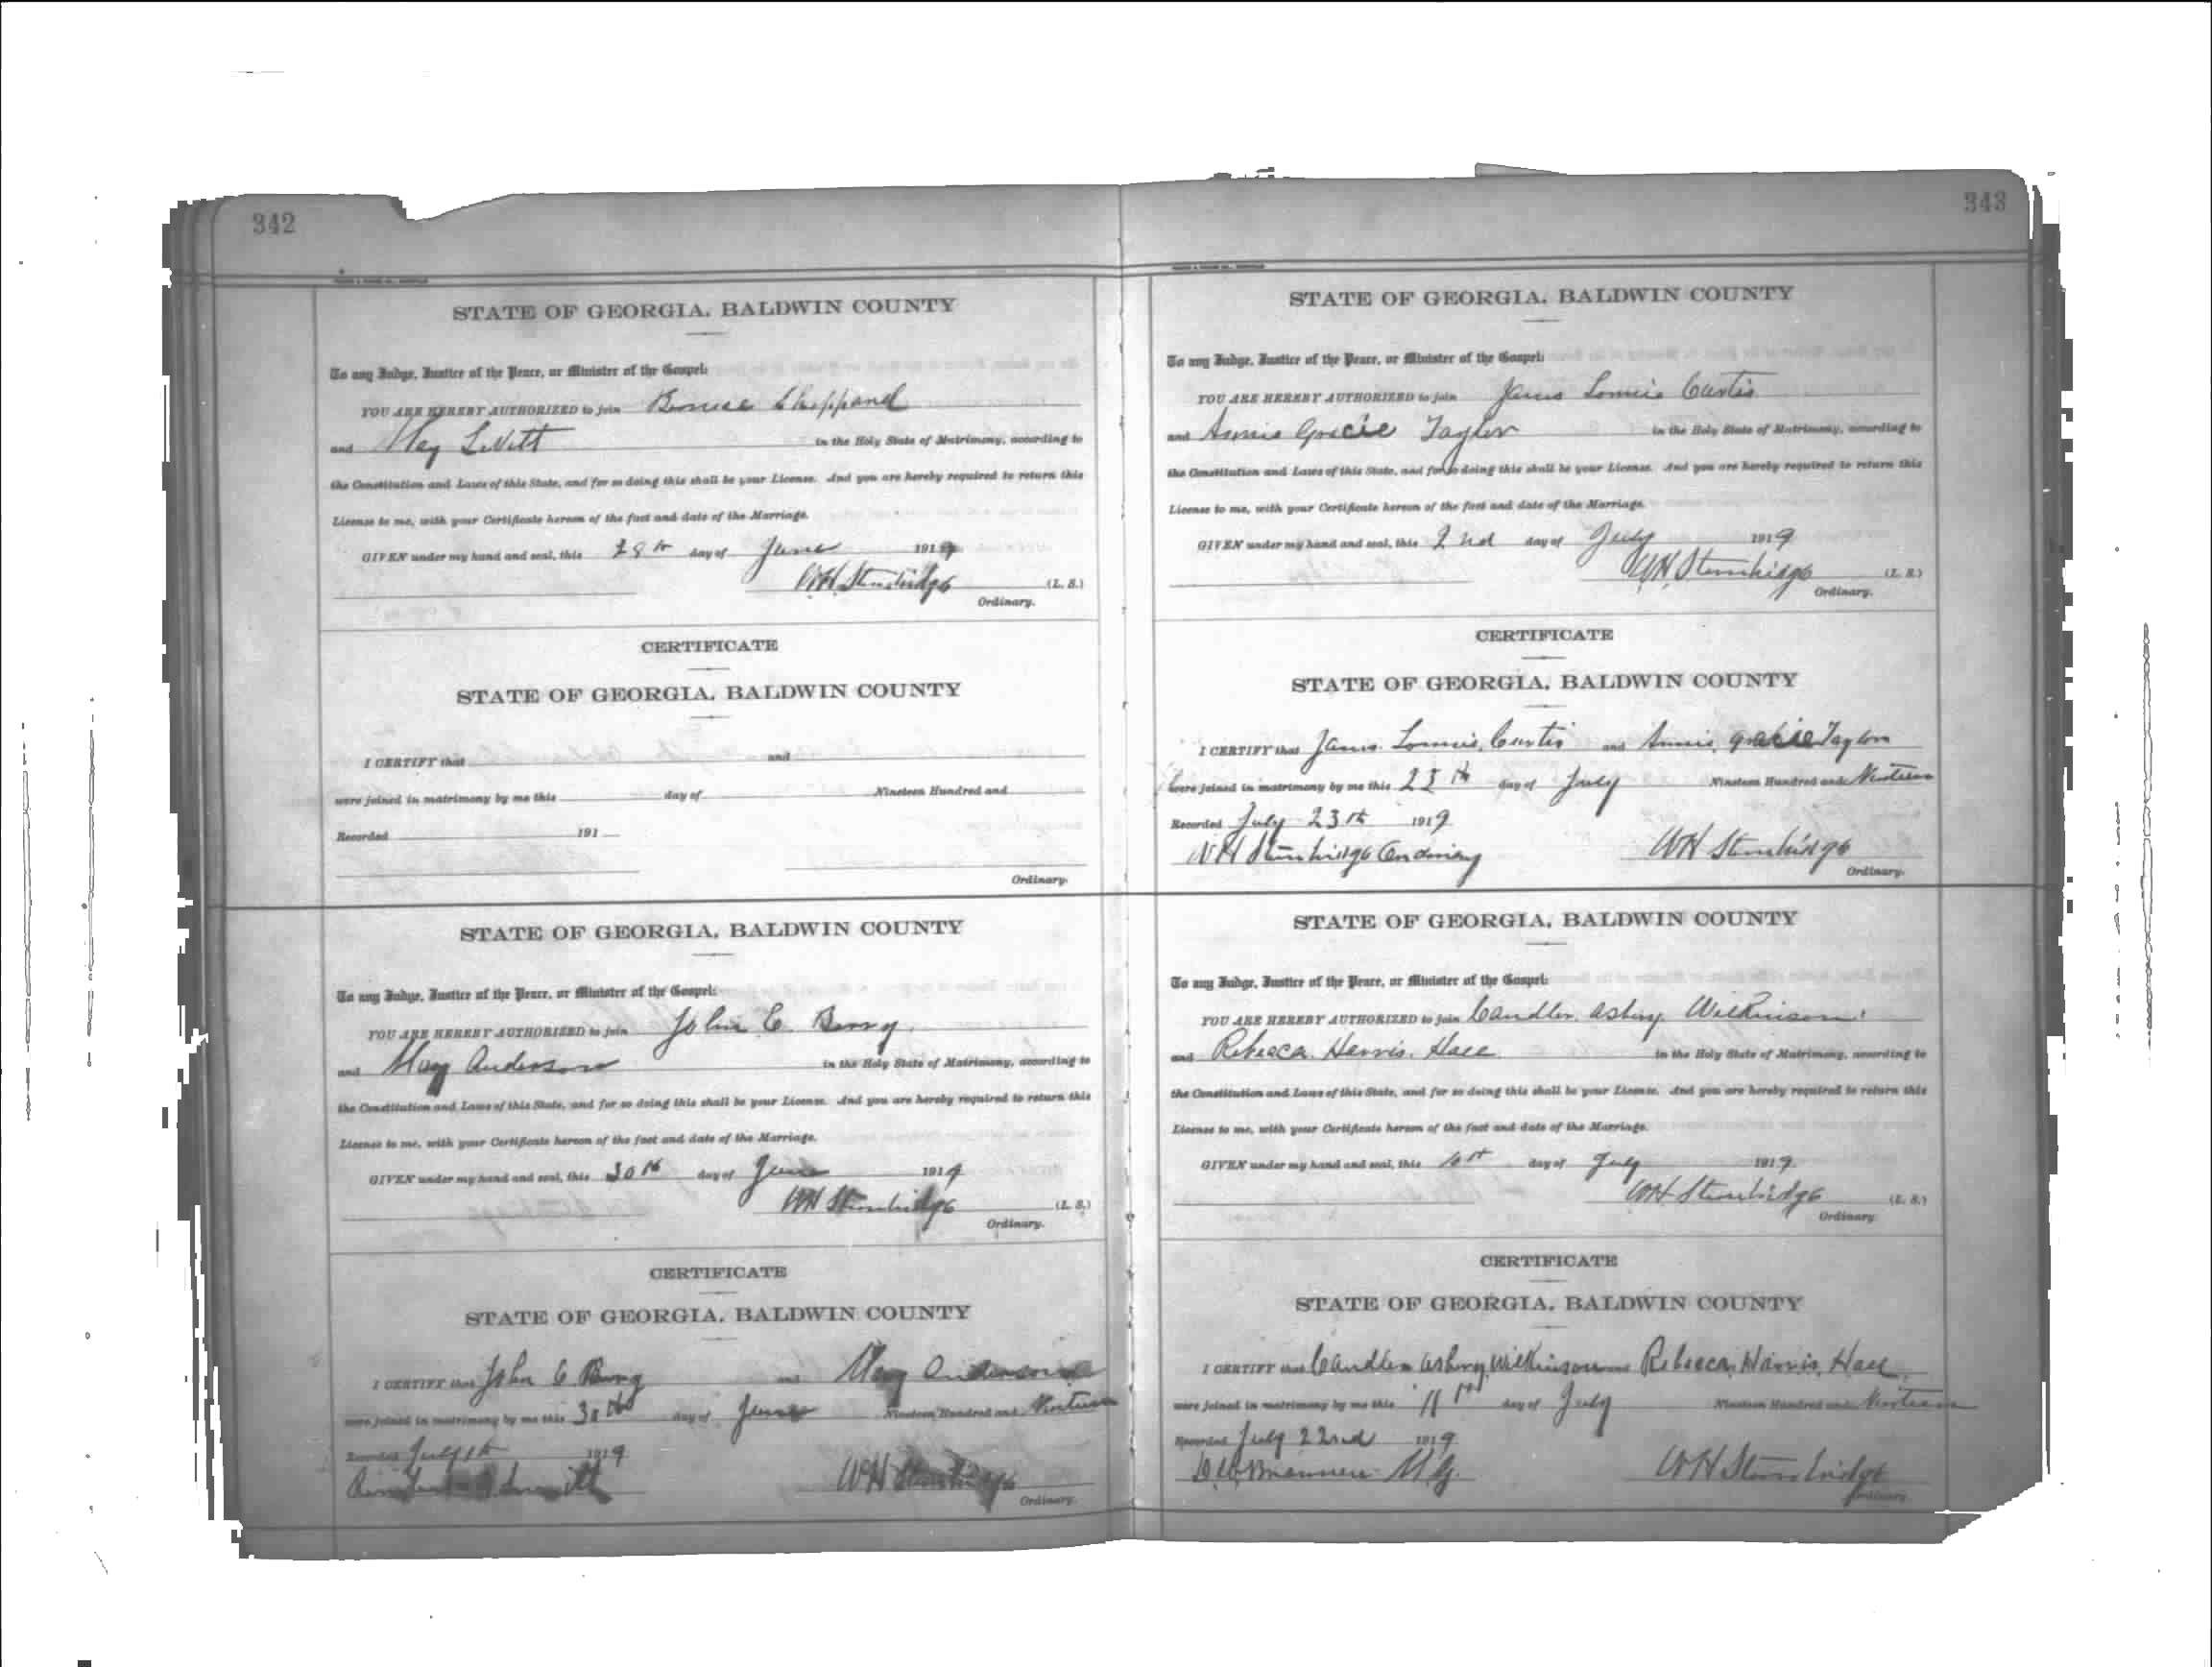 342
STATE OF GEORGIA, BALDWIN COUNTY
To any Judge, Justice of the Peace, or Minister of the Gospel:
YOU ARE HEREBY AUTHORIZED to join Sheppard
and May in the Holy State of Matrimony, according to
the Constitution and Laws of this State, and for so doing this shall be your License. And you are hereby required to return this
License to me, with your Certificate hereon of the fact and date of the Marriage.
GIVEN under my hand and seal, this 28th day of June 1919
WH Stembridge (L. S.)
Ordinary.
CERTIFICATE
STATE OF GEORGIA, BALDWIN COUNTY
I CERTIFY that and
were joined in matrimony by me this day of Nineteen Hundred and
Recorded 191
Ordinary.
STATE OF GEORGIA, BALDWIN COUNTY
To any Judge, Justice of the Peace, or Minister of the Gospel:
YOU ARE HEREBY AUTHORIZED to join John C. Berry
and May Anderson in the Holy State of Matrimony, according to
the Constitution and Laws of this State, and for so doing this shall be your License. And you are hereby required to return this
License to me, with your Certificate hereon of the fact and date of the Marriage.
GIVEN under my hand and seal, this 30th day of June 1919
WH Stembridge (L. S.)
Ordinary.
CERTIFICATE
STATE OF GEORGIA, BALDWIN COUNTY
I CERTIFY that John C. Berry and May Anderson
were joined in matrimony by me this 30th day of June Nineteen Hundred and Nineteen
Recorded July 1st 1919
Smith WH Stembridge
Ordinary.
343
STATE OF GEORGIA, BALDWIN COUNTY
To any Judge, Justice of the Peace, or Minister of the Gospel:
YOU ARE HEREBY AUTHORIZED to join James Lonnie Curtis
and Annie Gracie Taylor in the Holy State of Matrimony, according to
the Constitution and Laws of this State, and for so doing this shall be your License. And you are hereby required to return this
License to me, with your Certificate hereon of the fact and date of the Marriage.
GIVEN under my hand and seal, this 2nd day of July 1919
WH Stembridge (L. S.)
Ordinary.
CERTIFICATE
STATE OF GEORGIA, BALDWIN COUNTY
I CERTIFY that James Lonnie Curtis and Annie Gracie Taylor
were joined in matrimony by me this day of July Nineteen Hundred and Nineteen
Recorded July 23rd 1919
WH Stembridge Ordinary WH Stembridge
Ordinary.
STATE OF GEORGIA, BALDWIN COUNTY
To any Judge, Justice of the Peace, or Minister of the Gospel:
YOU ARE HEREBY AUTHORIZED to join Candler Asbury Wilkinson
and Rebecca Harris Hall in the Holy State of Matrimony, according to
the Constitution and Laws of this State, and for so doing this shall be your License. And you are hereby required to return this
License to me, with your Certificate hereon of the fact and date of the Marriage.
GIVEN under my hand and seal, this day of July 1919
WH Stembridge (L. S.)
Ordinary.
CERTIFICATE
STATE OF GEORGIA, BALDWIN COUNTY
I CERTIFY that Candler Asbury Wilkinson and Rebecca Harris Hall
were joined in matrimony by me this 11th day of July Nineteen Hundred and Nineteen
Recorded July 22nd 1919
M.G. WH Stembridge
Ordinary.